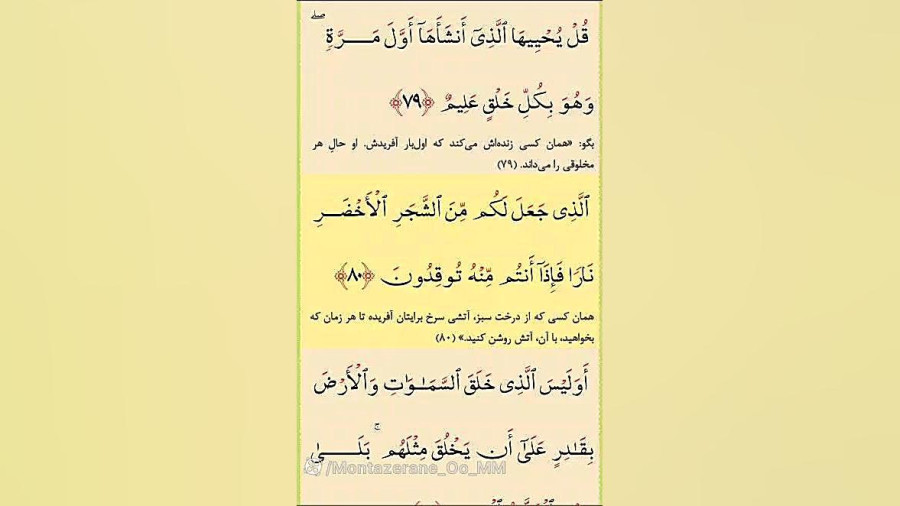 قُلْ يُحْيِيهَا ٱلَّذِىٓ أَنشَأَهَآ أَوَّلَ مَـــرَّةٍۖ
وَهُوَ بِكُلِّ خَلْقٍ عَلِيمٌ ﴿٧٩﴾
بگو: «همان کسی زنده‌اش می‌کند که اول‌بار آفریدش. او حالِ هر
مخلوقی را می‌داند. (٧٩)
ٱلَّذِى جَعَلَ لَكُم مِّنَ ٱلشَّجَرِ ٱلْأَخْضَـــرِ
نَارًا فَإِذَآ أَنتُم مِّنْهُ تُوقِدُونَ ﴿٨٠﴾
همان کسی که از درخت سبز، آتشی سرخ برایتان آفریده تا هر زمان که
بخواهید، با آن، آتش روشن کنید.» (٨٠)
أَوَلَيْسَ ٱلَّذِى خَلَقَ ٱلسَّمَـٰوَٰتِ وَٱلْأَرْضَ
بِقَـٰدِرٍ عَلَىٰٓ أَن يَخْلُقَ مِثْلَهُم ۚ بَلَـــىٰ
/Montazerane_Oo_MM